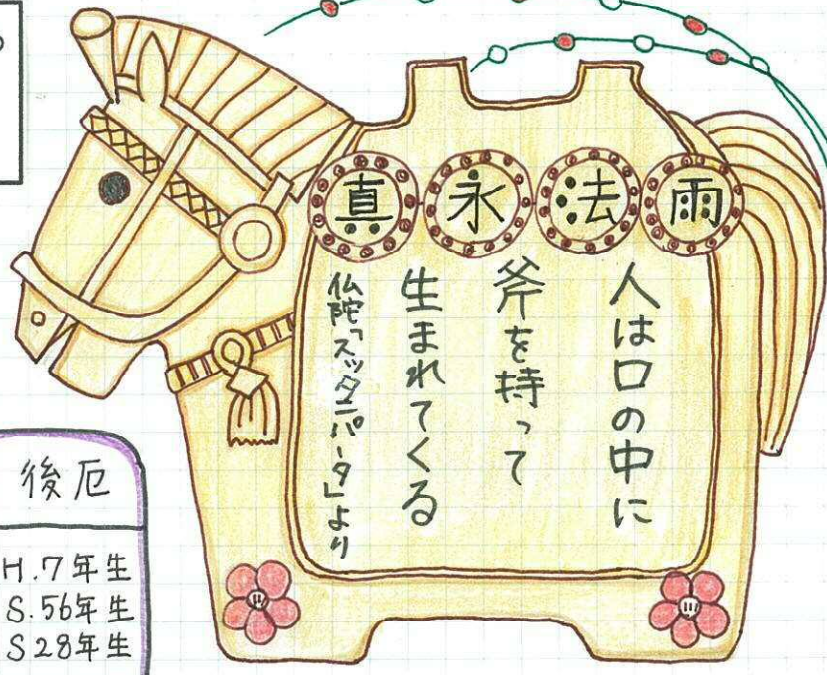 真永法雨
人は口の中に
斧を持って
生まれてくる
仏陀「スッタニパータ」より
後厄
H.7年生
S.56年生
S28年生